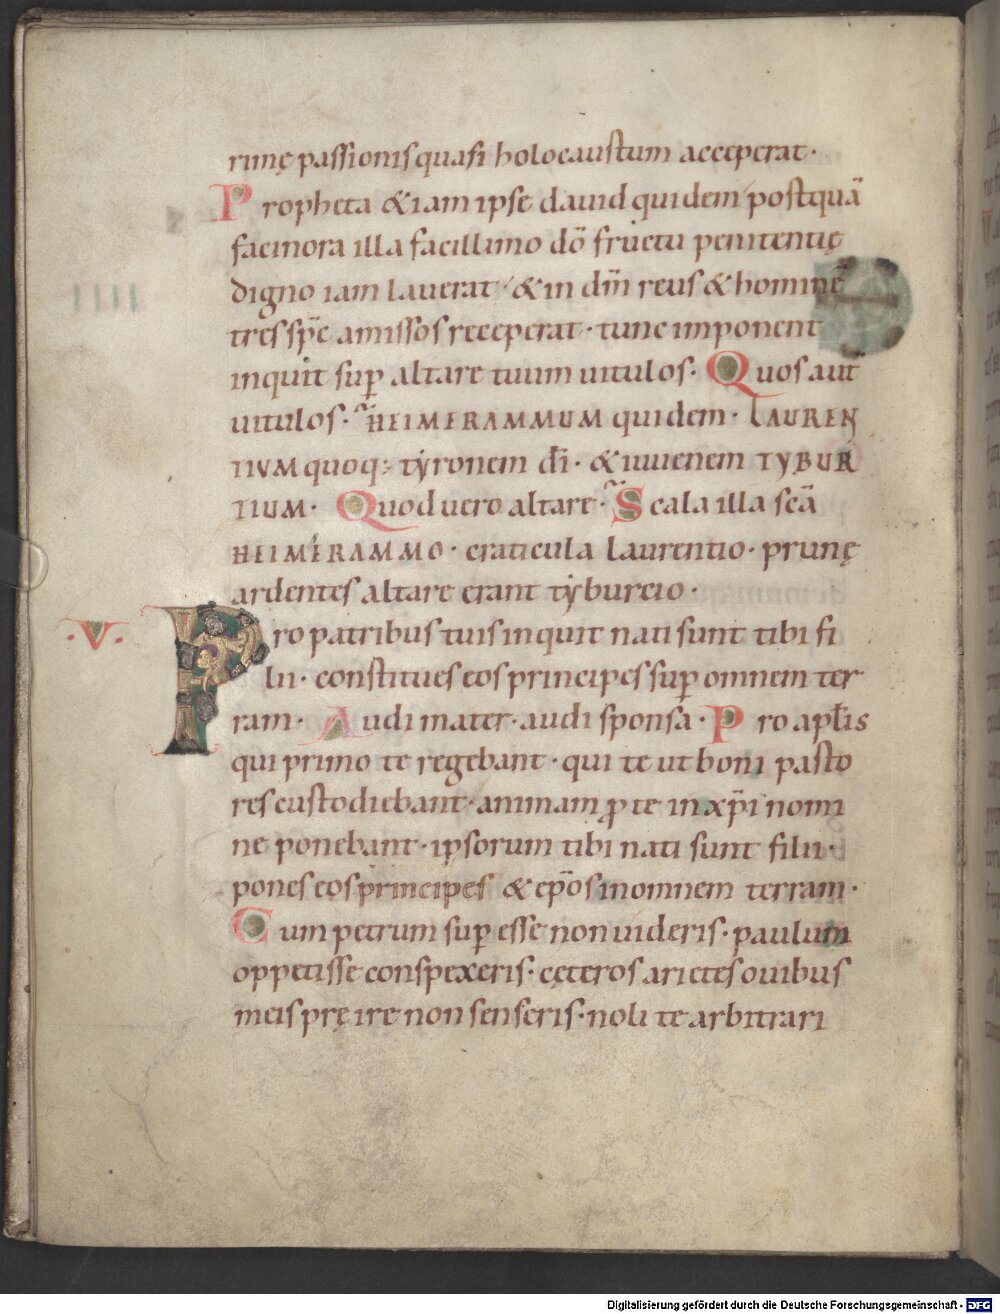 rimę passionis quasi holocaustum acceperat·
Propheta & iam ipse dauid quidem postquā
facinora illa facillimo dō fructu penitentię
digno iam lauerat· & in dn̄i reus & homine
tres sp̄c amissos receperat· tunc imponent
inquit sup̄ altare tuum uitulos· Quos aut̄
uitulos· HEIMERAMMUM quidem· LAUREN
TIUM quoq; tẏronem dī· & iuuenem TYBUR
TIUM· Quod uero altare· Scala illa scā
HEIMERAMMO· craticula laurentio· prunę
ardentes altare erant tẏburcio·
·V· Pro patribus tuis inquit nati sunt tibi fi
lii· constitues eos principes sup̄ omnem ter
ram· Audi mater· audi sponsa· Pro apl̄is
qui primo te regebant· qui te ut boni pasto
res custodiebant· animam ꝓ te in xp̄i nomi
ne ponebant· ipsorum tibi nati sunt filii·
pones eos principes & ep̄os in omnem terram·
Cum petrum sup̄ esse non uideris· paulum
oppetisse conspexeris· cęteros arietes ouibus
meis pręire non senseris· noli te arbitrari
Digitalisierung gefördert durch die Deutsche Forschungsgemeinschaft - DFG